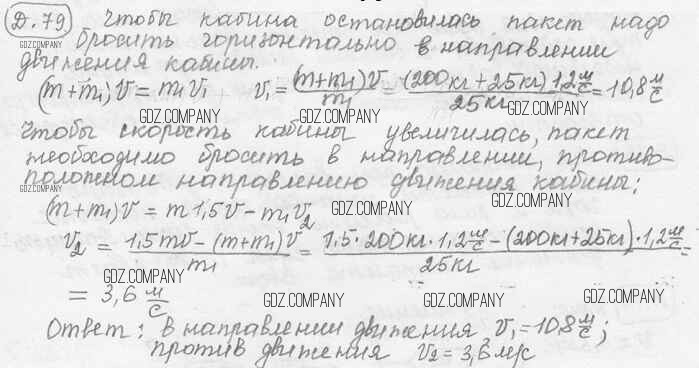 Д.79. Чтобы кабина остановилась, пакет надо
бросить горизонтально в направлении
GDZ.COMPANY GDZ.COMPANY GDZ.COMPANY
движения кабины.
(m+m₁)v = m₁v₁ v₁ = (m+m₁)v / m₁ = (200кг+25кг)·1,2 м/с / 25кг = 10,8 м/с
GDZ.COMPANY GDZ.COMPANY GDZ.COMPANY
Чтобы скорость кабины увеличилась, пакет
необходимо бросить в направлении, противо-
GDZ.COMPANY
положном направлению движения кабины;
(m+m₁)v = m 1,5v - m₁v₂
GDZ.COMPANY GDZ.COMPANY
v₂ = 1,5mv - (m+m₁)v / m₁ = 1,5·200кг·1,2 м/с - (200кг+25кг)·1,2 м/с / 25кг =
GDZ.COMPANY
= 3,6 м/с
GDZ.COMPANY GDZ.COMPANY GDZ.COMPANY
Ответ: в направлении движения v₁ = 10,8 м/с;
против движения v₂ = 3,6 м/с